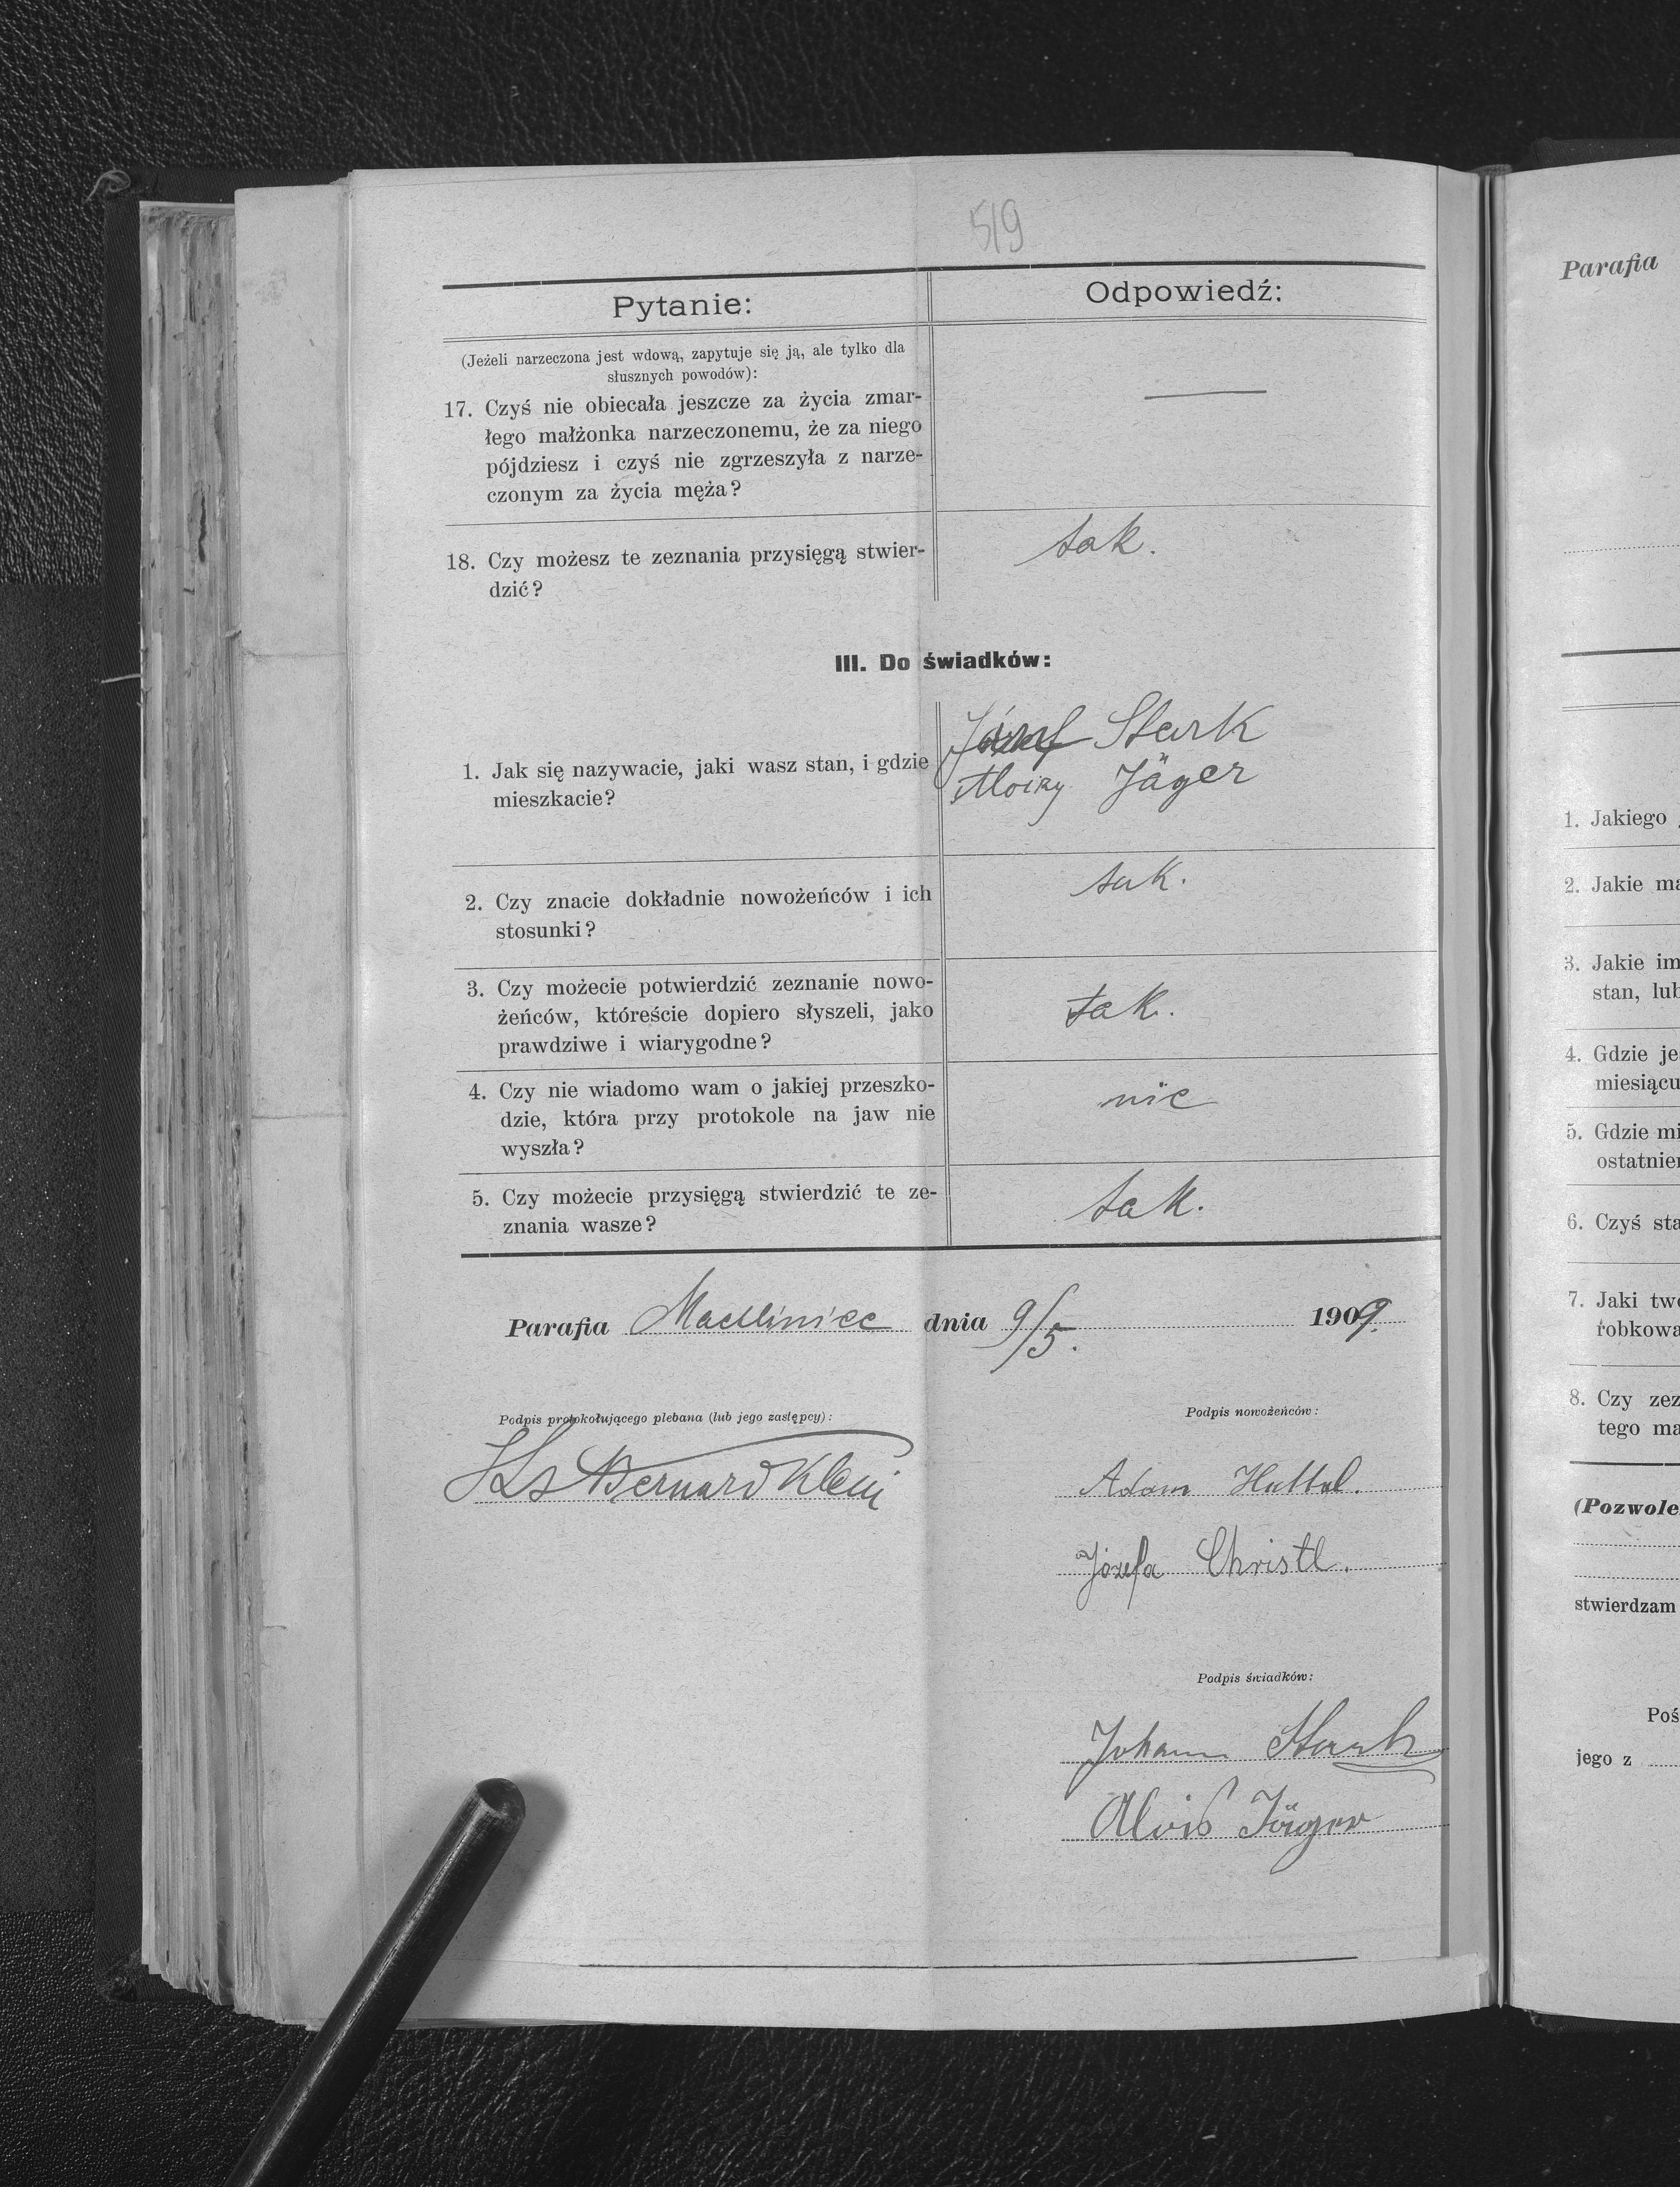 519
Pytanie:
Odpowiedź:
(Jeżeli narzeczona jest wdową, zapytuje się ją, ale tylko dla
słusznych powodów):
17. Czyś nie obiecała jeszcze za życia zmar-
łego małżonka narzeczonemu, że za niego
pójdziesz i czyś nie zgrzeszyła z narze-
czonym za życia męża?
—
18. Czy możesz te zeznania przysięgą stwier-
dzić?
tak.
III. Do świadków:
1. Jak się nazywacie, jaki wasz stan, i gdzie
mieszkacie?
Stark
Alojzy Jäger
2. Czy znacie dokładnie nowożeńców i ich
stosunki?
tak.
3. Czy możecie potwierdzić zeznanie nowo-
żeńców, któreście dopiero słyszeli, jako
prawdziwe i wiarygodne?
tak.
4. Czy nie wiadomo wam o jakiej przeszko-
dzie, która przy protokole na jaw nie
wyszła?
nie
5. Czy możecie przysięgą stwierdzić te ze-
znania wasze?
tak.
Parafia Machliniec dnia 9/5. 1909.
Podpis protokołującego plebana (lub jego zastępcy):
Ks Bernard Klein
Podpis nowożeńców:
Adam Huttel.
Józefa Christl.
Podpis świadków:
Johann Stark
Alois Jäger
Parafia
1. Jakiego
2. Jakie ma
3. Jakie im
stan, lub
4. Gdzie je
miesiącu
5. Gdzie mi
ostatnie
6. Czyś sta
7. Jaki two
robkowa
8. Czy zez
tego ma
(Pozwole
stwierdzam
Poś
jego z